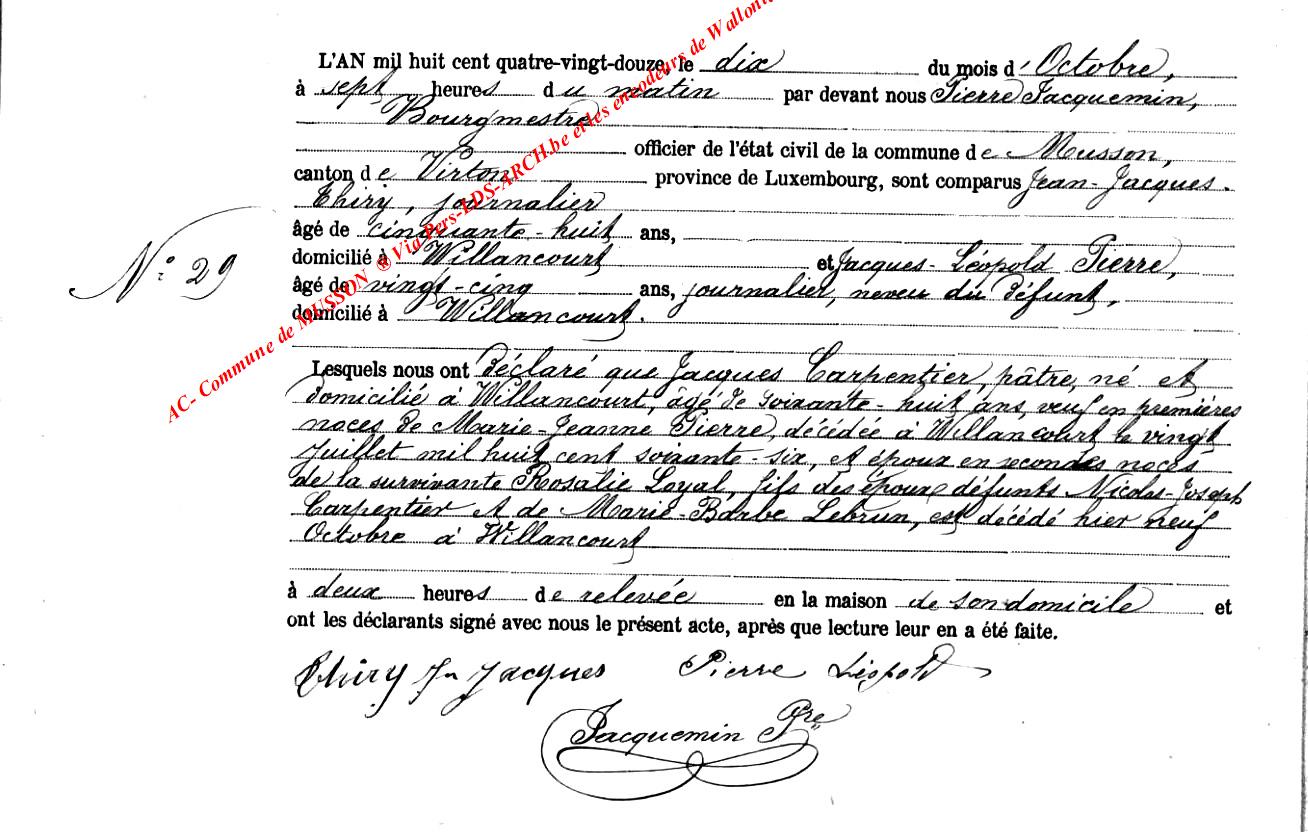 L'AN mil huit cent quatre-vingt-douze, le dix du mois d'Octobre,
à sept heures du matin par devant nous Pierre Jacquemin,
Bourgmestre
officier de l'état civil de la commune de Musson,
canton de Virton province de Luxembourg, sont comparus Jean-Jacques
Thiry, journalier
âgé de cinquante-huit ans,
domicilié à Willancourt et Jacques-Léopold Pierre,
âgé de vingt-cinq ans, journalier, neveu du défunt,
domicilié à Willancourt.
N° 29
Lesquels nous ont déclaré que Jacques Carpentier, pâtre, né et
domicilié à Willancourt, âgé de soixante-huit ans, veuf en premières
noces de Marie-Jeanne Pierre, décédée à Willancourt le vingt
Juillet mil huit cent soixante-six, et époux en secondes noces
de la survivante Rosalie Loyal, fils des époux défunts Nicolas-Joseph
Carpentier et de Marie-Barbe Lebrun, est décédé hier neuf
Octobre à Willancourt
à deux heures de relevée en la maison de son domicile et
ont les déclarants signé avec nous le présent acte, après que lecture leur en a été faite.
Thiry Jn Jacques Pierre Léopold
Jacquemin Pre
AC- Commune de MUSSON ® Via Pers-LDS-ARCH.be et les encodeurs de Wallonie